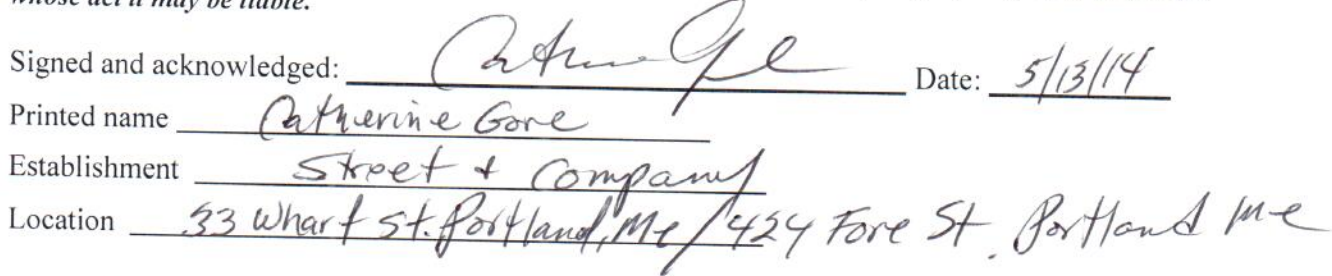 whose act it may be liable.
Signed and acknowledged: Date: 5/13/14
Printed name Catherine Gore
Establishment Street + Company
Location 33 Wharf St. Portland, Me / 424 Fore St. Portland Me